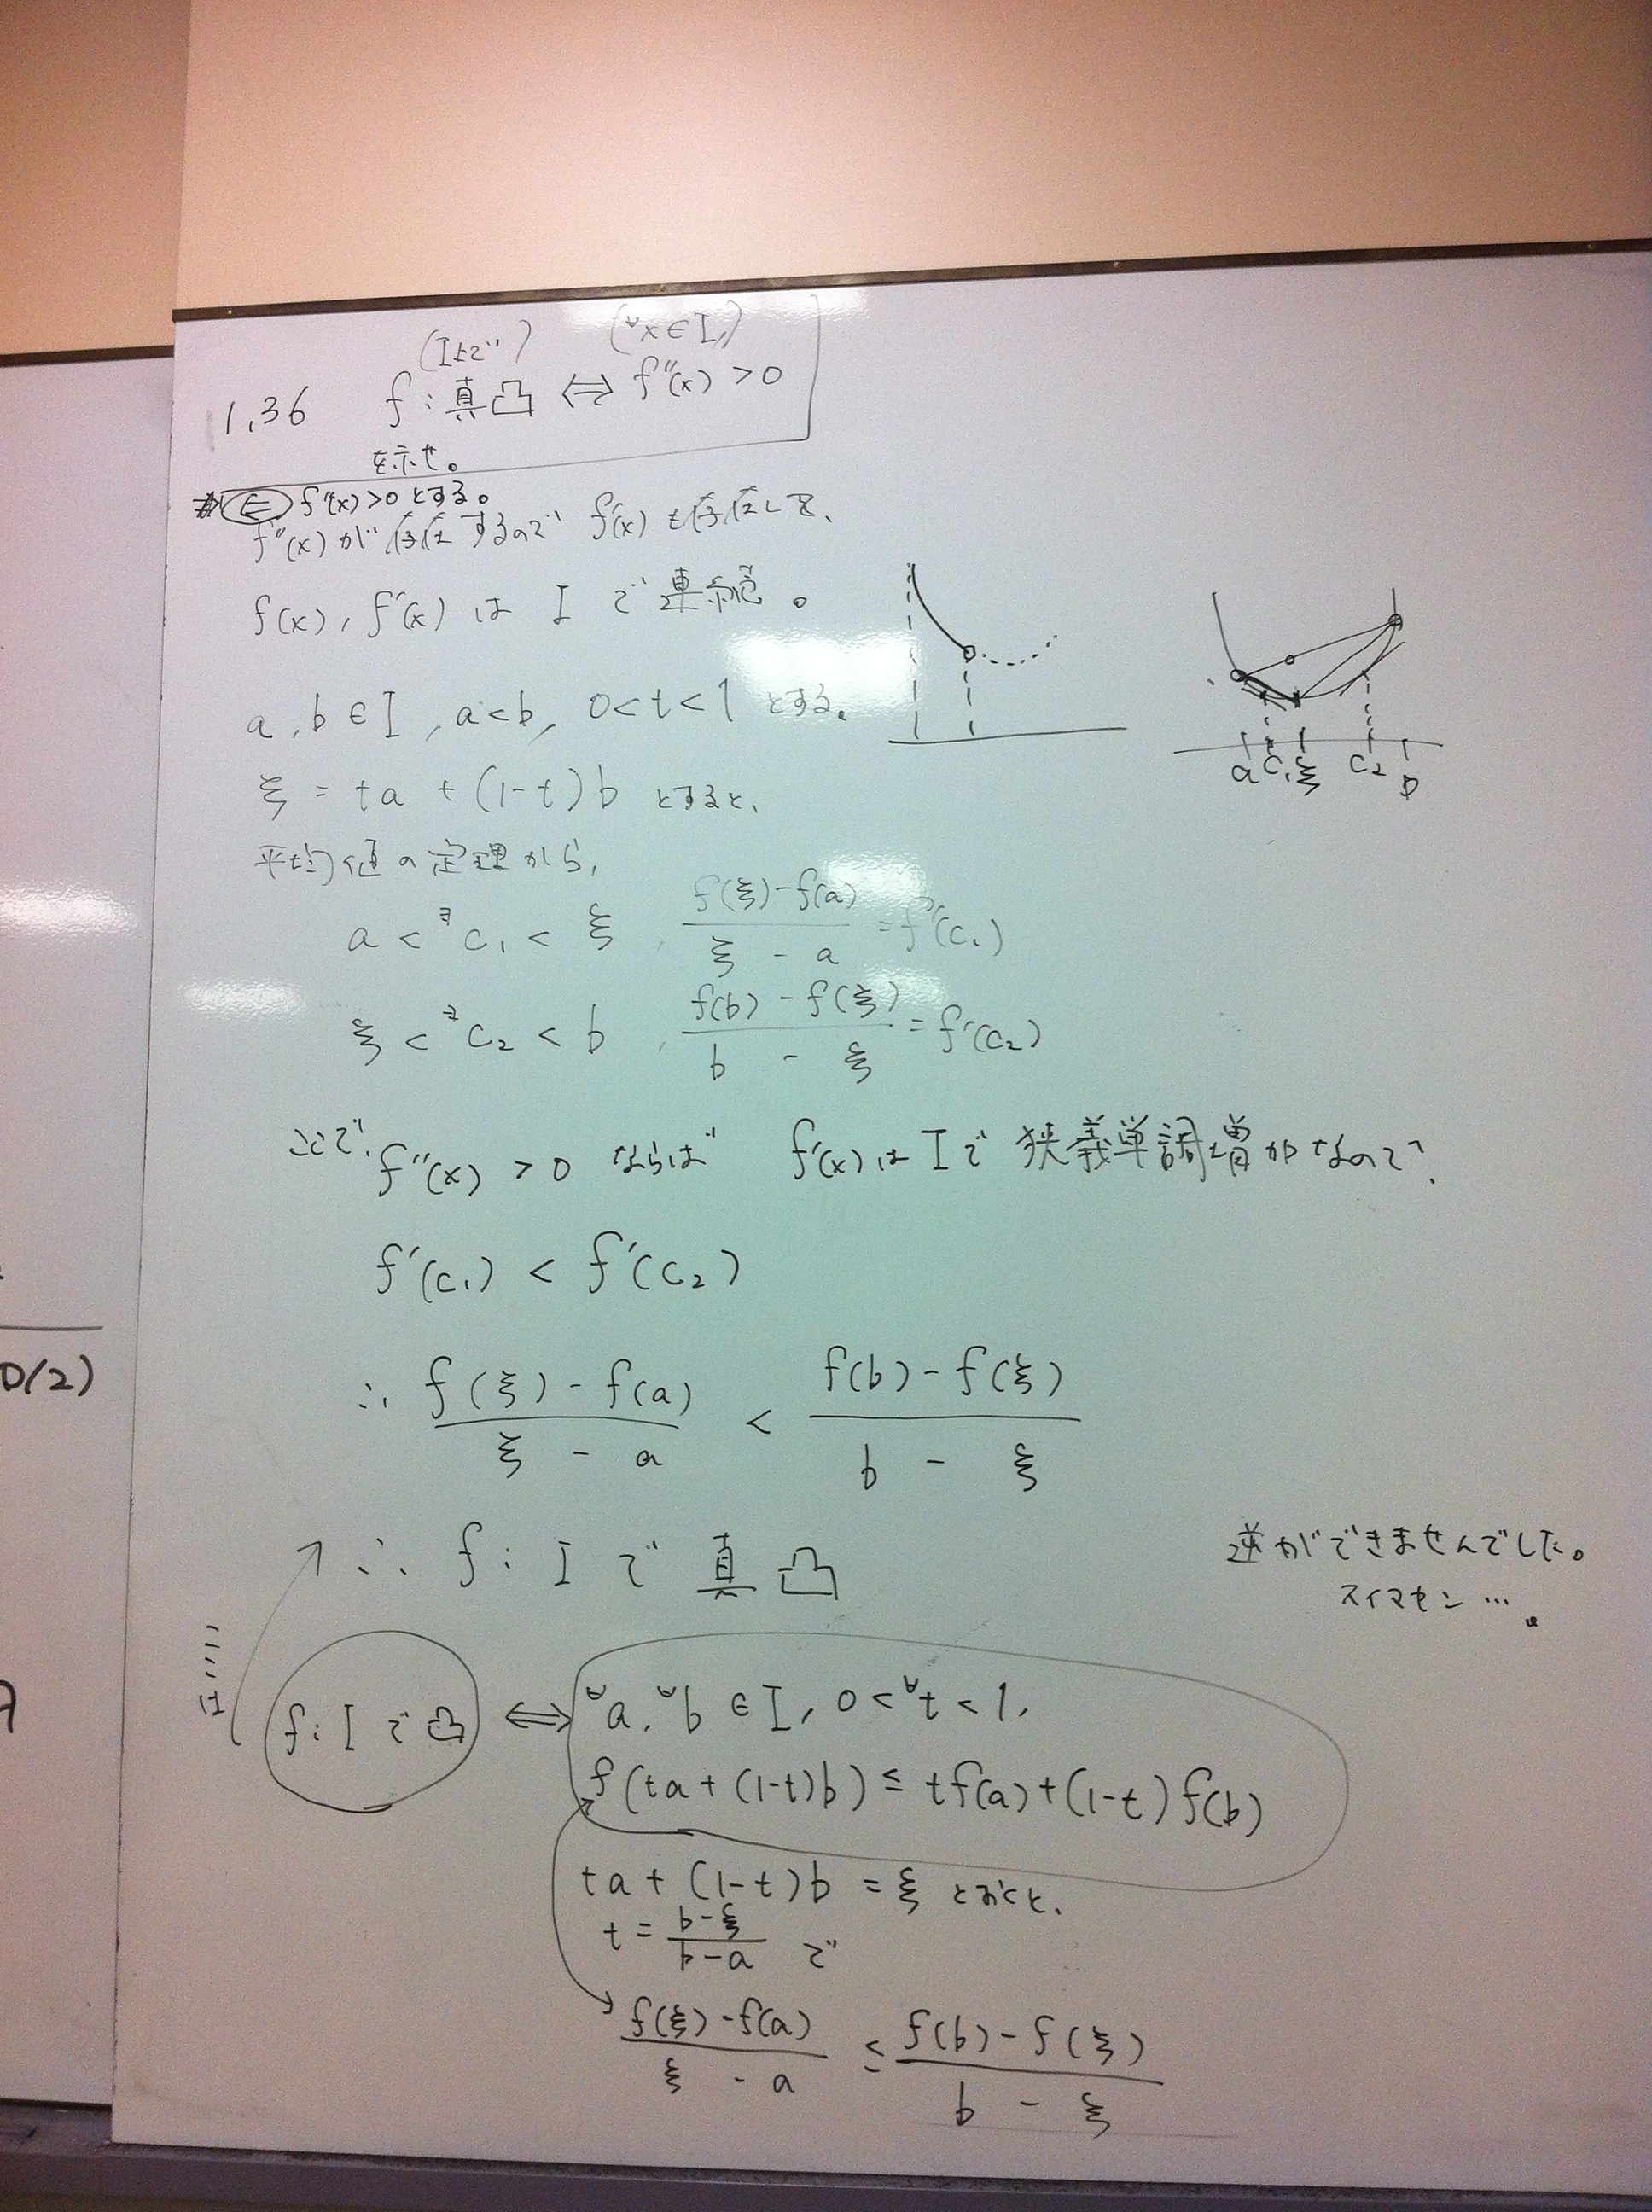 (I上で) (∀x∈I,)
1.36 f:真凸 ⇔ f''(x) > 0
を示せ。
⇐ f''(x)>0とする。
f''(x)が存在するので f'(x)も存在して、
f(x), f'(x) は I で連続。
a, b ∈ I, a<b, 0<t<1 とする。
ξ = ta + (1-t)b とすると、
平均値の定理から、
a < ∃c₁ < ξ, (f(ξ)-f(a))/(ξ - a) = f'(c₁)
ξ < ∃c₂ < b, (f(b) - f(ξ))/(b - ξ) = f'(c₂)
a c₁ ξ c₂ b
ここで、f''(x) > 0 ならば f'(x)は I で 狭義単調増加なので、
f'(c₁) < f'(c₂)
∴ (f(ξ) - f(a))/(ξ - a) < (f(b) - f(ξ))/(b - ξ)
∴ f: I で 真凸
逆ができませんでした。
スイマセン…。
f: I で凸 ⇔ ∀a, ∀b ∈ I, 0 < ∀t < 1,
f(ta + (1-t)b) ≤ tf(a) + (1-t)f(b)
ta + (1-t)b = ξ とおくと、
t = (b-ξ)/(b-a) で
(f(ξ) - f(a))/(ξ - a) ≤ (f(b) - f(ξ))/(b - ξ)
D(2)